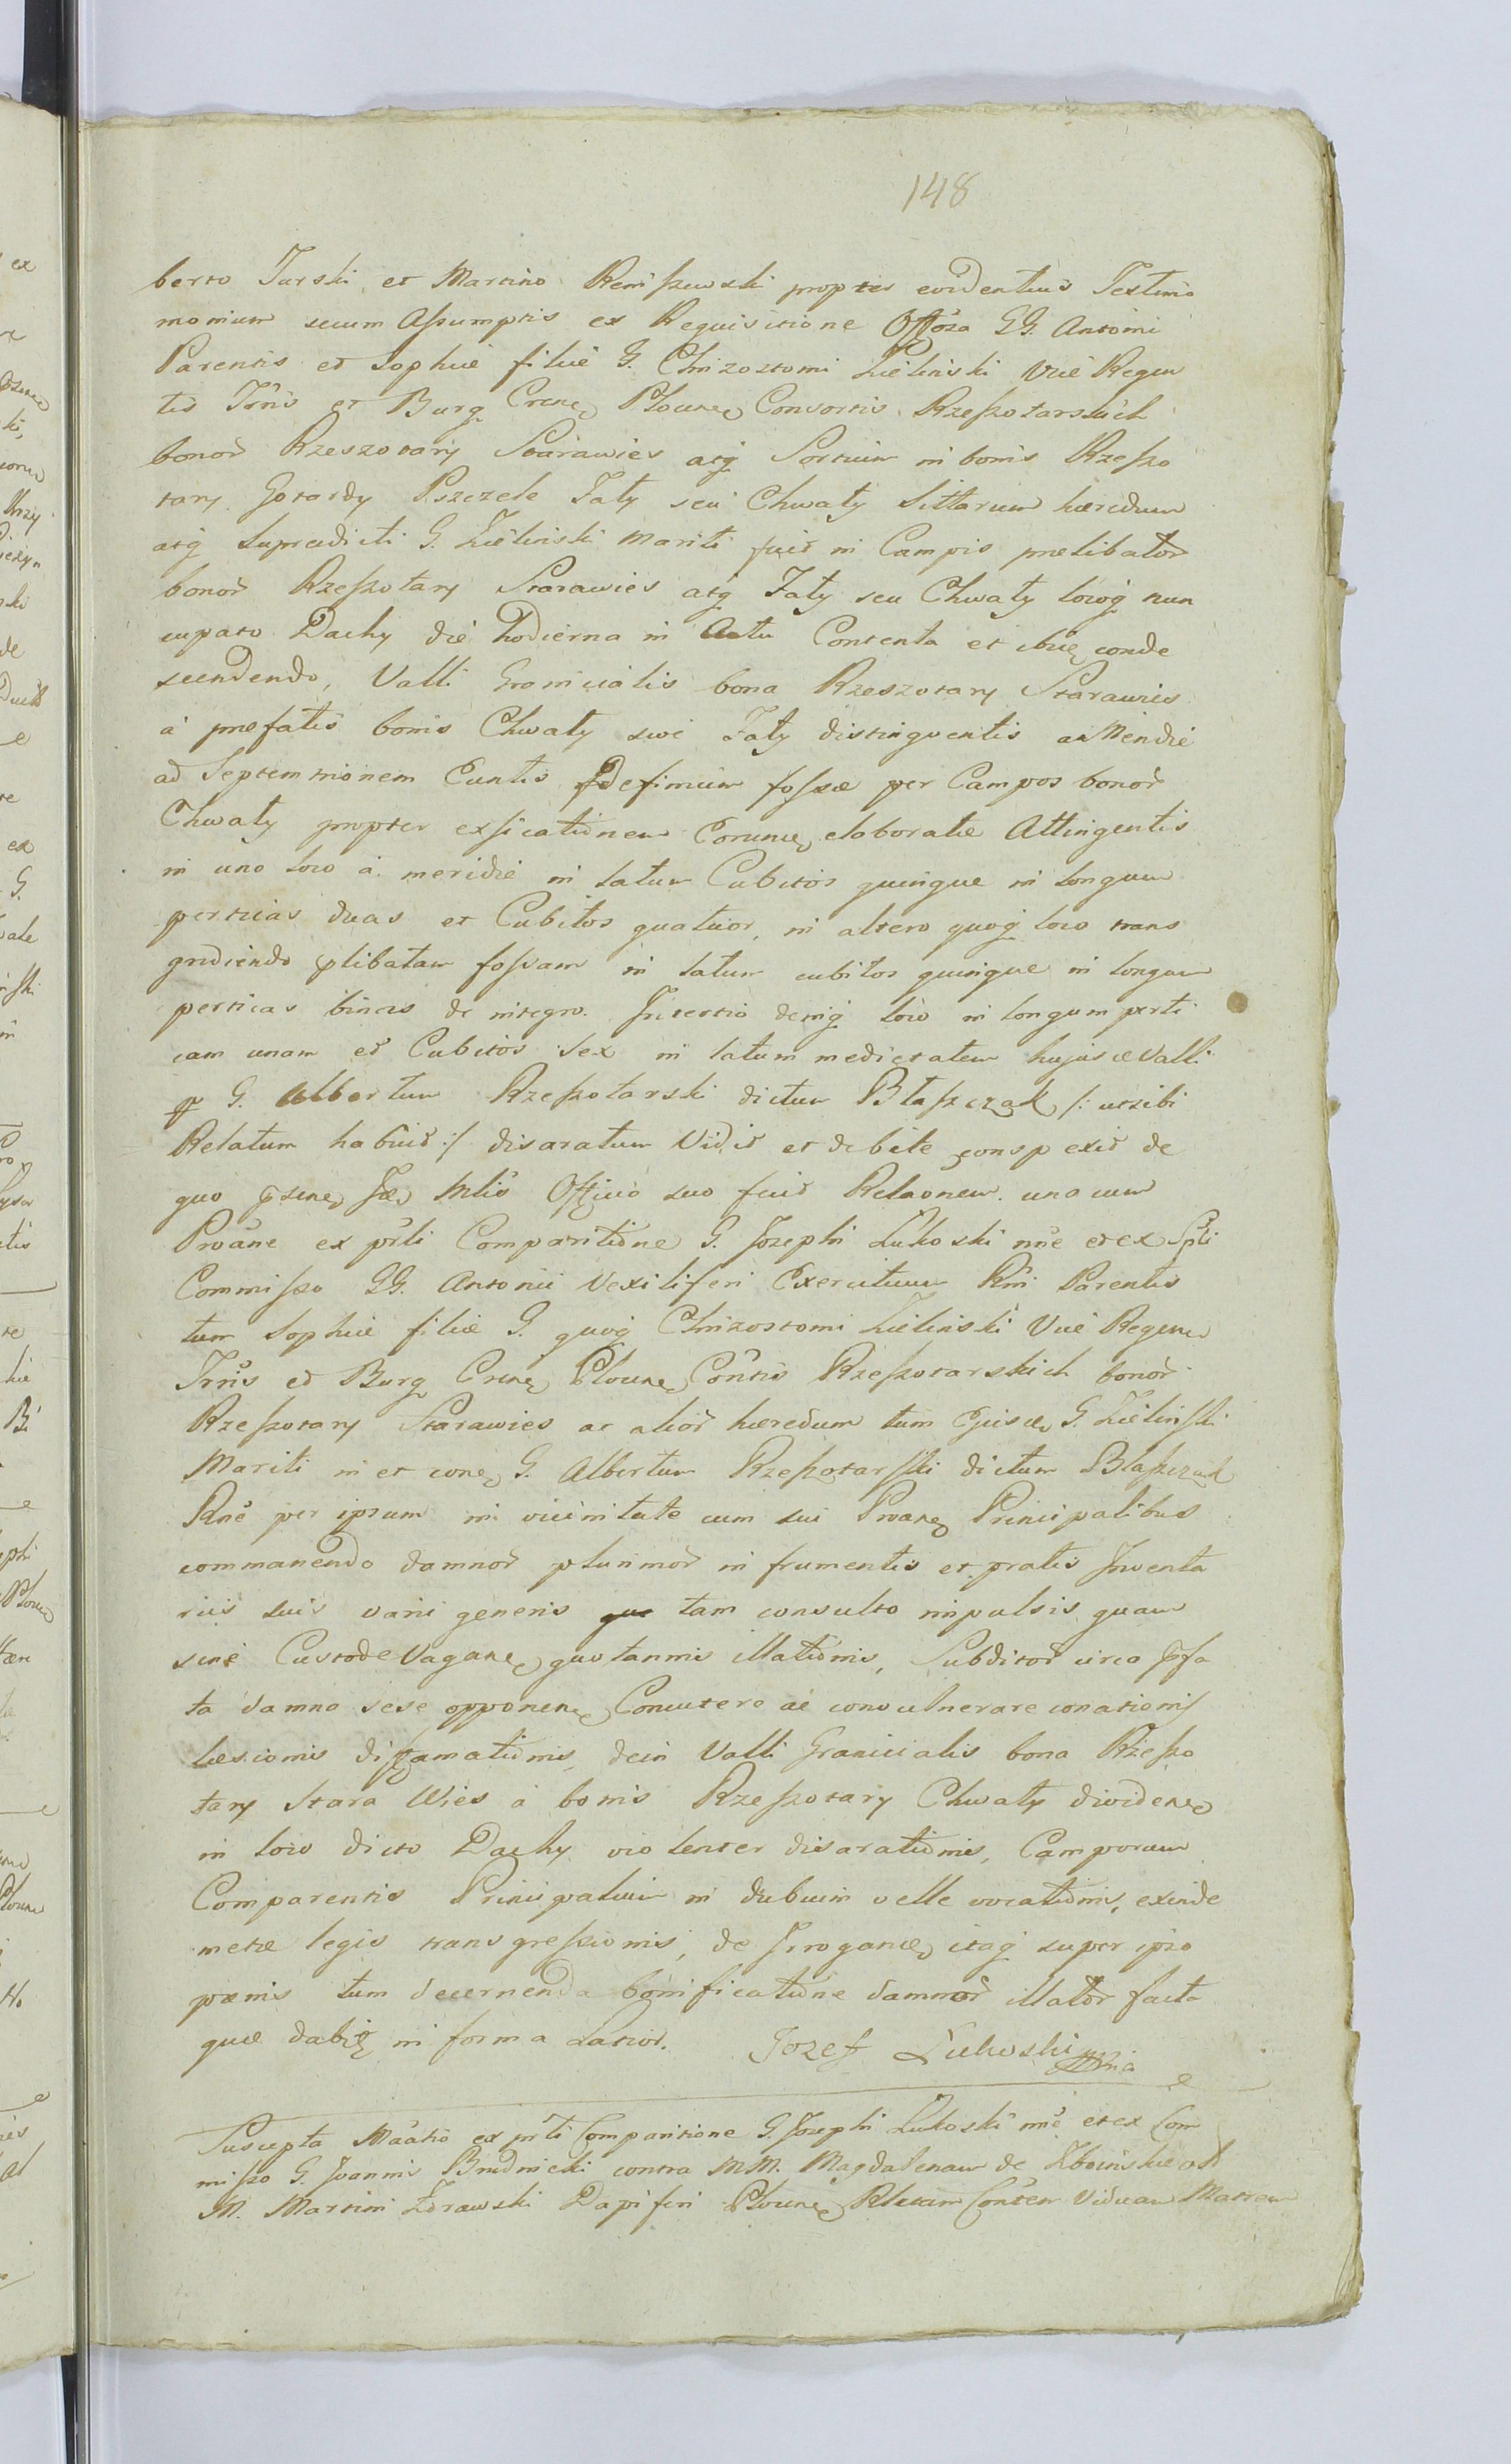 148
berto Turski et Martino Remiszewski propter evidentius Testimo
monium secum Assumptis ex Requisitione Offoza GG. Antoni
Parentis et Sophiæ filiæ G. Chrizostomi Zieliński Vice Regen
tis Trris et Burg Crene Plocne Consortis Rzeszotarskich
bonor Rzeszotary Starawies atq Sortium in bonis Rzeszo
tary Gotardy Pszczele Jaty seu Chwały Sittarum hæredum
atq Supradicti G. Zieliński Mariti fuit in Campis prælibator
bonor Rzeszotary Starawies atq Jaty seu Chwały locoq nun
cupato Dachy die hodierna in Actu Contenta et ibiq conde
scendendo, Valli Granicialis bona Rzeszotary Starawies
a præfatis bonis Chwały sive Jaty distinguentis a Meridie
ad Septemtrionem Euntis fossæ per Campos bonor
Chwały propter exsicationem elaboratæ Attingentis
in uno loco a meridie in latum Cubitos quinque in longum
perticas duas et Cubitos quatuor, in altero quoq loco trans
grediendo plibatam fossam in latum cubitos quinque in longum
perticas binas de integro. In tertio deniq loco in longum perti
cam unam et Cubitos Sex in latum medietatem hujusce Valli
p G. Albertum Rzeszotarski dictum Błaszczak /: uti sibi
Relatum habuit :/ disaratum Vidit et debite conspexit de
quo Officio suo fecit Relaonem. una cum
Proane ex prsti Comparitione G. Josephi Lukoski mne et ex Spli
Commisso GG. Antonii Vexiliferi Exercituum Rni Parentis
tum Sophiæ filiæ G. quoq Chrizostomi Zieliński Vice Regene
Trris et Burg Crene Plocne Contis Rzeszotarskich bonor
Rzeszotary Starawies ac alior hæredum tum Ejusce G. Zieliński
Mariti in et cone G. Albertum Rzeszotarski dictum Błaszczak
Rne per ipsum in vicinitate cum sui Proane Principalibus
commanendo damnor plurimor in frumentis et pratis Inventa
riis suis varii generis tam consulto impulsis quam
sine Custode Vagane quotannis illationis, Subditor circa pfa
ta damna sese opponene Concutere ac convulnerare conationis
læsionis diffamationis, dein Valli Granicialis bona Rzeszo
tary Stara Wies a bonis Rzeszotary Chwały dividene
in loco dicto Dachy violenter disarationis, Camporum
Comparentis Principalium in dubium velle vocationis, exinde
metæ legis transgressionis, de Irrogane itaq super ipso
pœnis tum decernenda bonificatione damnor illator facta
quæ dabit in forma Latior. Jozef Lukoski
Suscepta ex prsti Comparitione G. Josephi Lukoski mne et ex Com
misso G. Joannis Brudnicki contra MM. Magdalenam de Zboinskie
M. Martini Zdrawski Dapiferi Plocne Contem Viduam Matrem